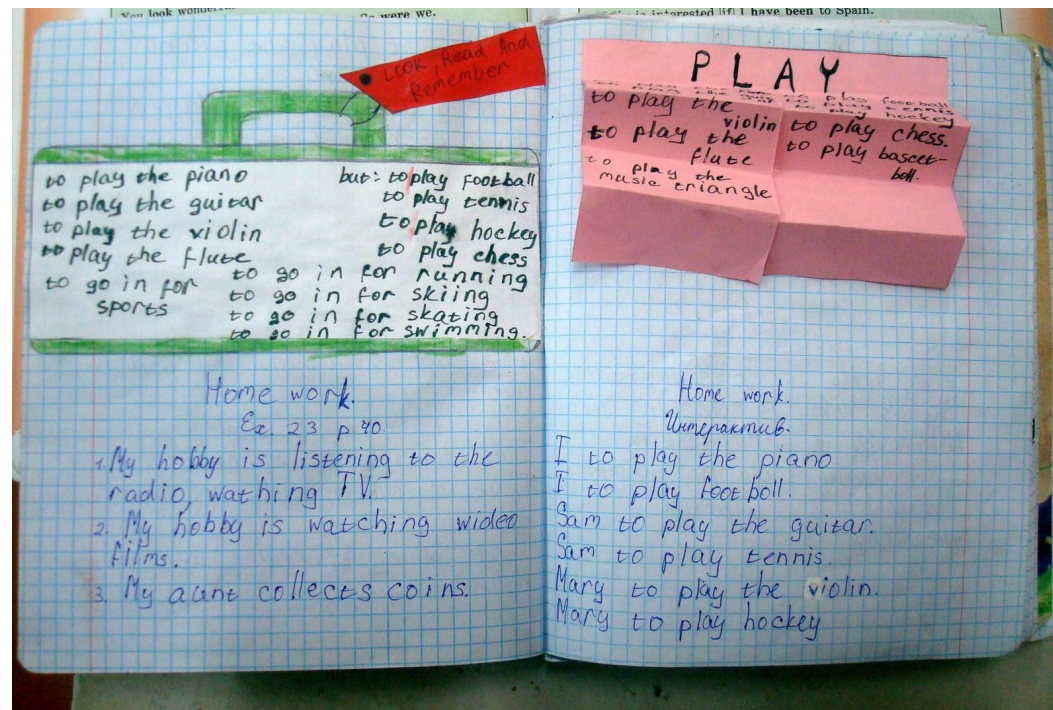 You look
So were we.
is interested
I have been to Spain.
Look, Read And
Remember
to play the piano
to play the guitar
to play the violin
to play the flute
to go in for
sports
but: to play football
to play tennis
to play hockey
to play chess
to go in for running
to go in for skiing
to go in for skating
to go in for swimming.
Home work.
Ex. 23 p 40
1. My hobby is listening to the
radio, wathing TV.
2. My hobby is watching wideo
films.
3. My aunt collects coins.
PLAY
to play the
violin
to play the
flute
to play the
music triangle
to play football
to play tennis
to play hockey
to play chess.
to play bascet-
boll.
Home work.
Интерактив.
I to play the piano
I to play footboll.
Sam to play the guitar.
Sam to play tennis.
Mary to play the violin.
Mary to play hockey